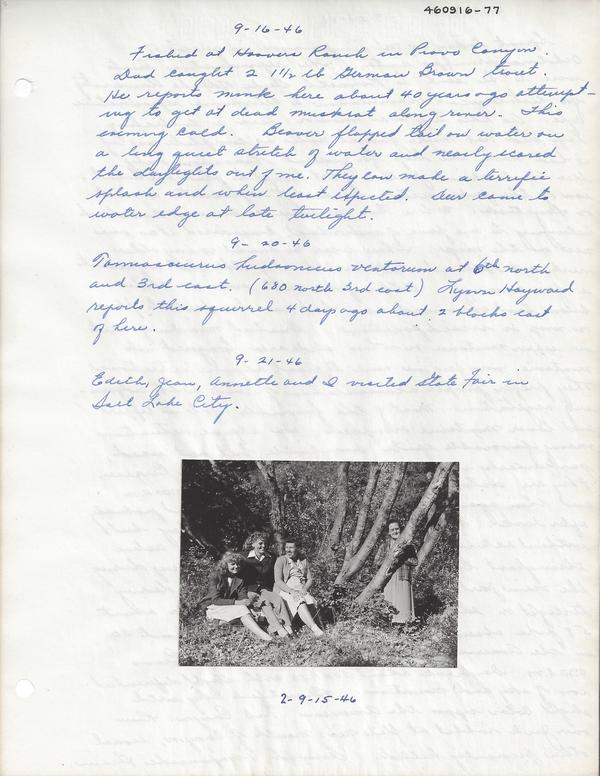 460916-77
9-16-46
Fished at Hoovers Ranch in Provo Canyon.
Dad caught 2 1½ lb German Brown trout.
He reports mink here about 40 years ago attempt-
ing to get at dead muskrat along river. This
evening cold. Beaver flapped tail on water on
a long quiet stretch of water and nearly scared
the daylights out of me. They can make a terrific
splash and when least expected. Deer come to
water edge at late twilight.
9-20-46
Tamiasciurus hudsonicus ventorum at 6th north
and 3rd east. (680 north 3rd east) Lynn Hayward
reports this squirrel 4 days ago about 2 blocks east
of here.
9-21-46
Edith, Jean, Annette and I visited State Fair in
Salt Lake City.
2-9-15-46